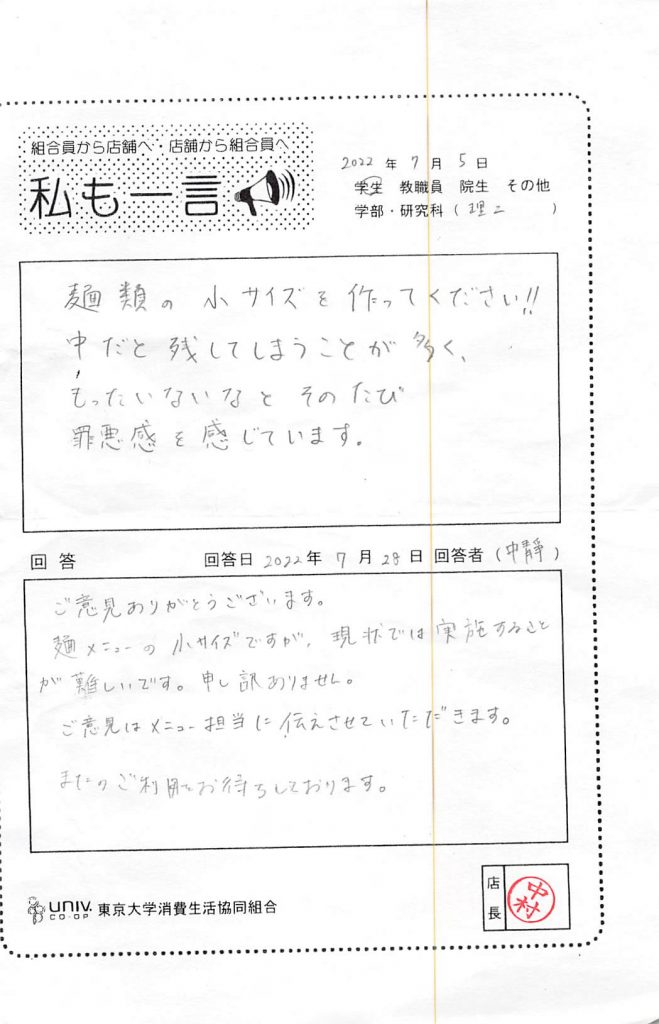 組合員から店舗へ・店舗から組合員へ
私も一言
2022 年 7 月 5 日
学生 教職員 院生 その他
学部・研究科 ( 理二 )
麺類の 小サイズを 作ってください!!
中だと 残してしまうことが 多く、
もったいないなと そのたび
罪悪感を 感じています。
回答 回答日 2022 年 7 月 28 日 回答者 ( 中靜 )
ご意見ありがとうございます。
麺メニューの 小サイズですが、現状では実施すること
が 難しいです。申し訳ありません。
ご意見はメニュー担当に伝えさせていただきます。
またのご利用をお待ちしております。
UNIV. CO-OP 東京大学消費生活協同組合
店長
中村